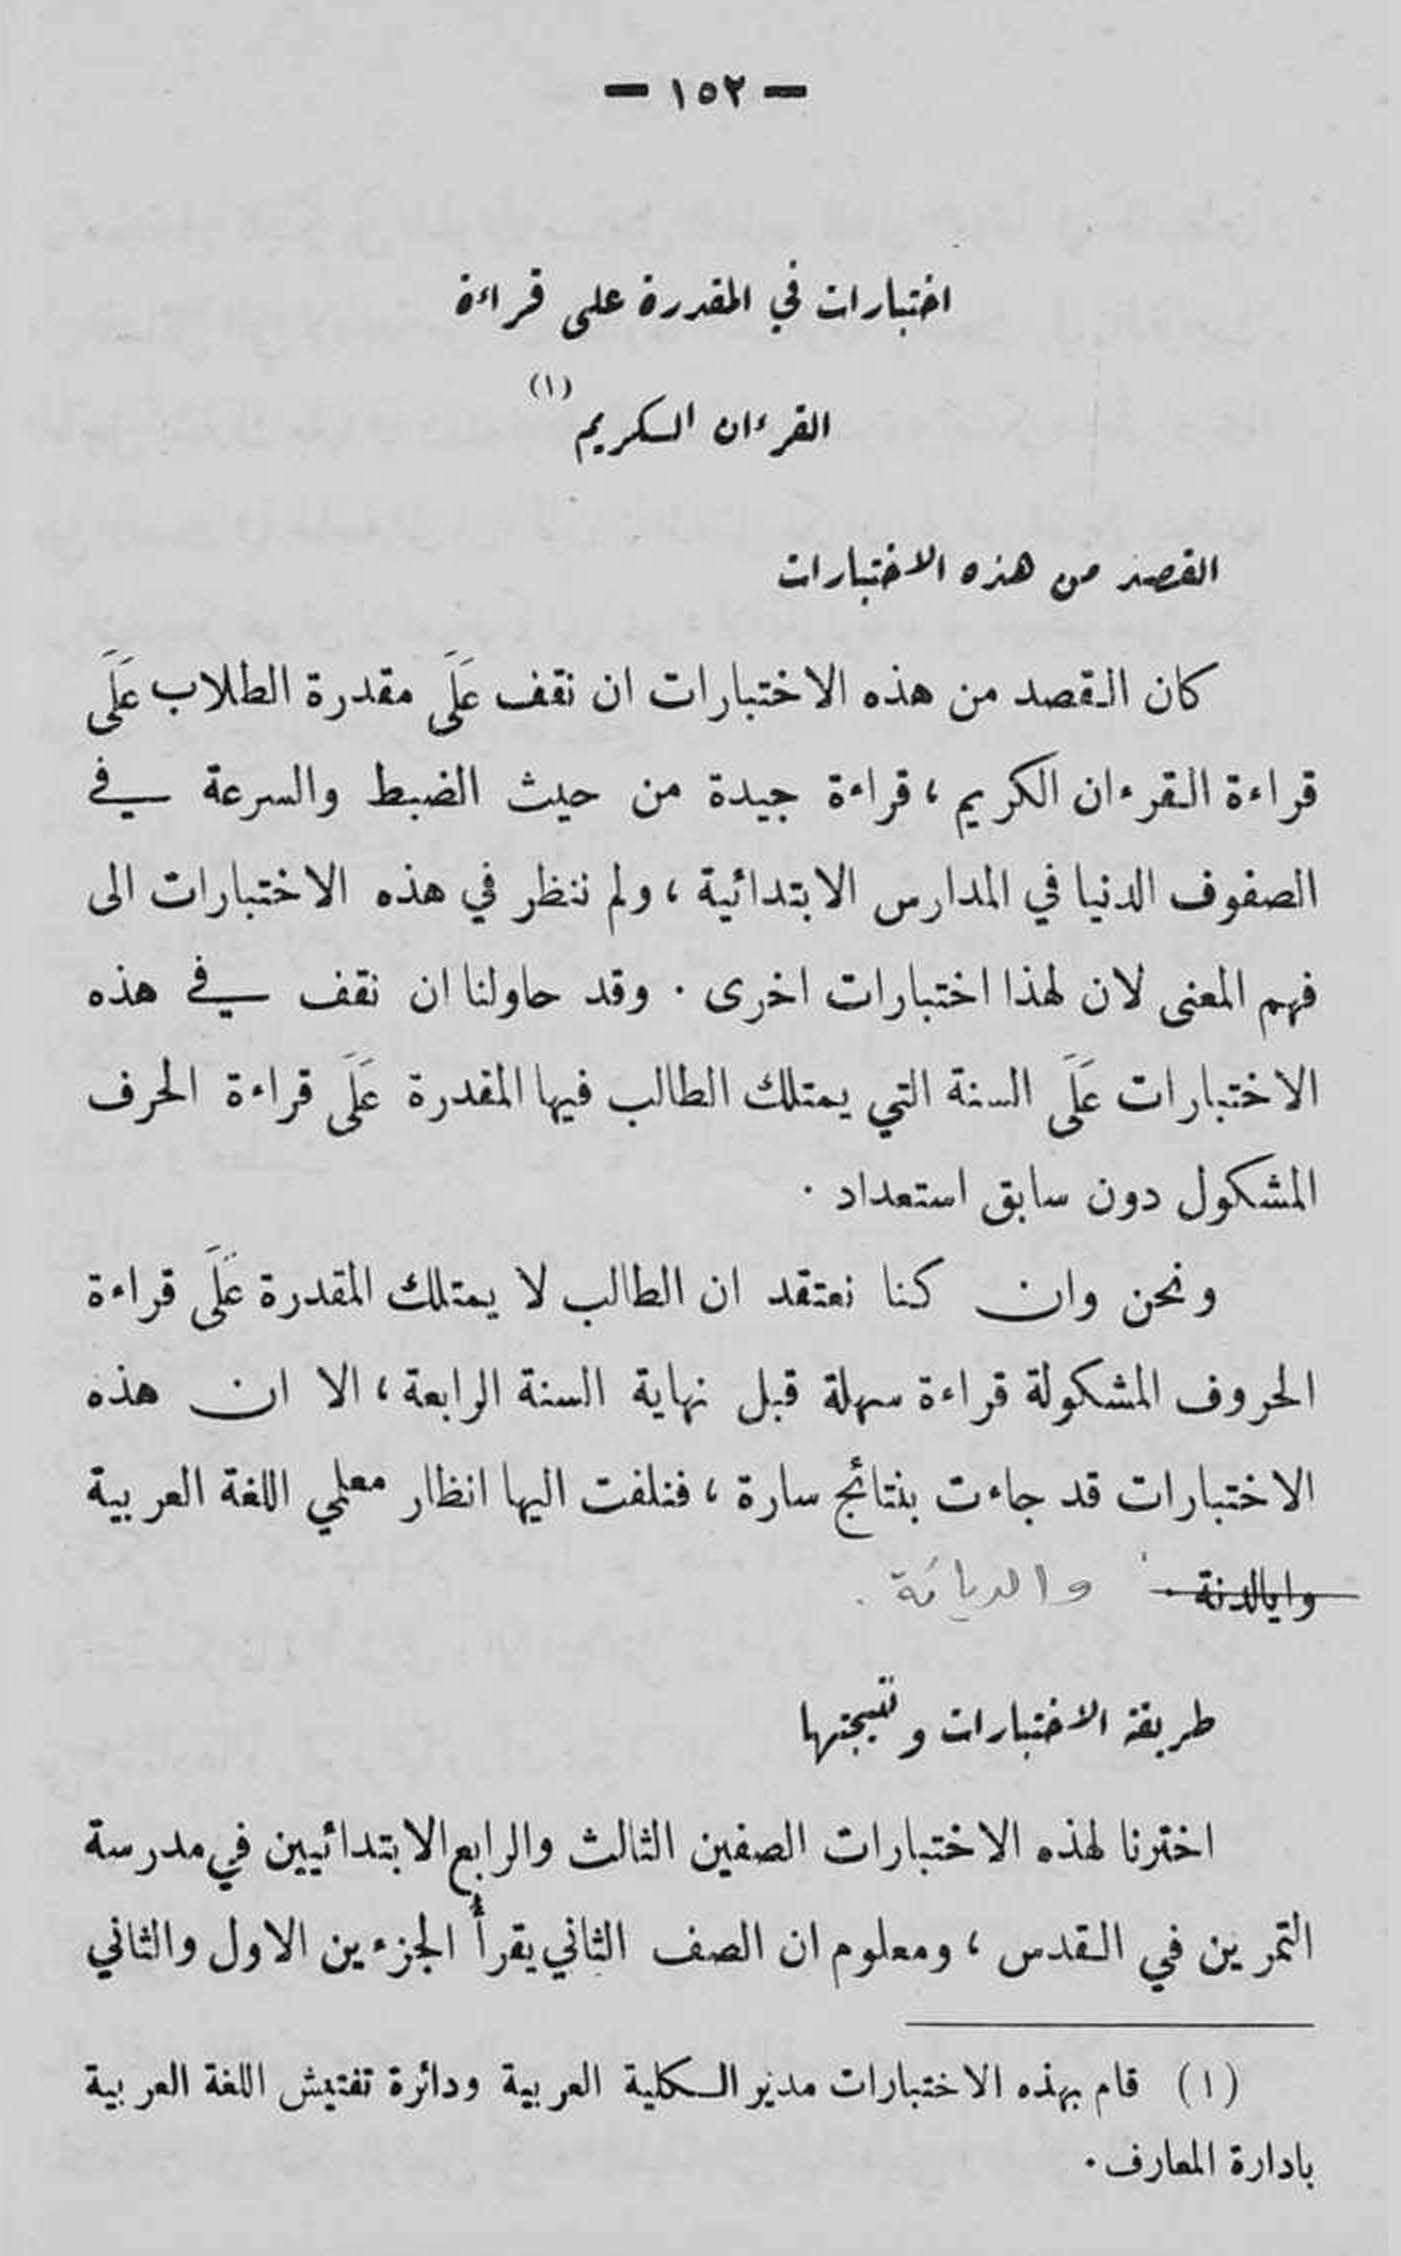 — ١٥٢ —
اختبارات في المقدرة على قراءة
القرءان الكريم (١)
القصد من هذه الاختبارات
كان القصد من هذه الاختبارات ان نقف عَلَى مقدرة الطلاب عَلَى
قراءة القرءان الكريم ، قراءة جيدة من حيث الضبط والسرعة في
الصفوف الدنيا في المدارس الابتدائية ، ولم ننظر في هذه الاختبارات الى
فهم المعنى لان لهذا اختبارات اخرى . وقد حاولنا ان نقف في هذه
الاختبارات عَلَى السنة التي يمتلك الطالب فيها المقدرة عَلَى قراءة الحرف
المشكول دون سابق استعداد .
ونحن وان كنا نعتقد ان الطالب لا يمتلك المقدرة عَلَى قراءة
الحروف المشكولة قراءة سهلة قبل نهاية السنة الرابعة ، الا ان هذه
الاختبارات قد جاءت بنتائج سارة ، فنلفت اليها انظار معلمي اللغة العربية
وايالدنة . والديانة .
طريقة الاختبارات ونتيجتها
اخترنا لهذه الاختبارات الصفين الثالث والرابع الابتدائيين في مدرسة
التمرين في القدس ، ومعلوم ان الصف الثاني يقرأُ الجزءين الاول والثاني
(١) قام بهذه الاختبارات مدير الكلية العربية ودائرة تفتيش اللغة العربية
بادارة المعارف .